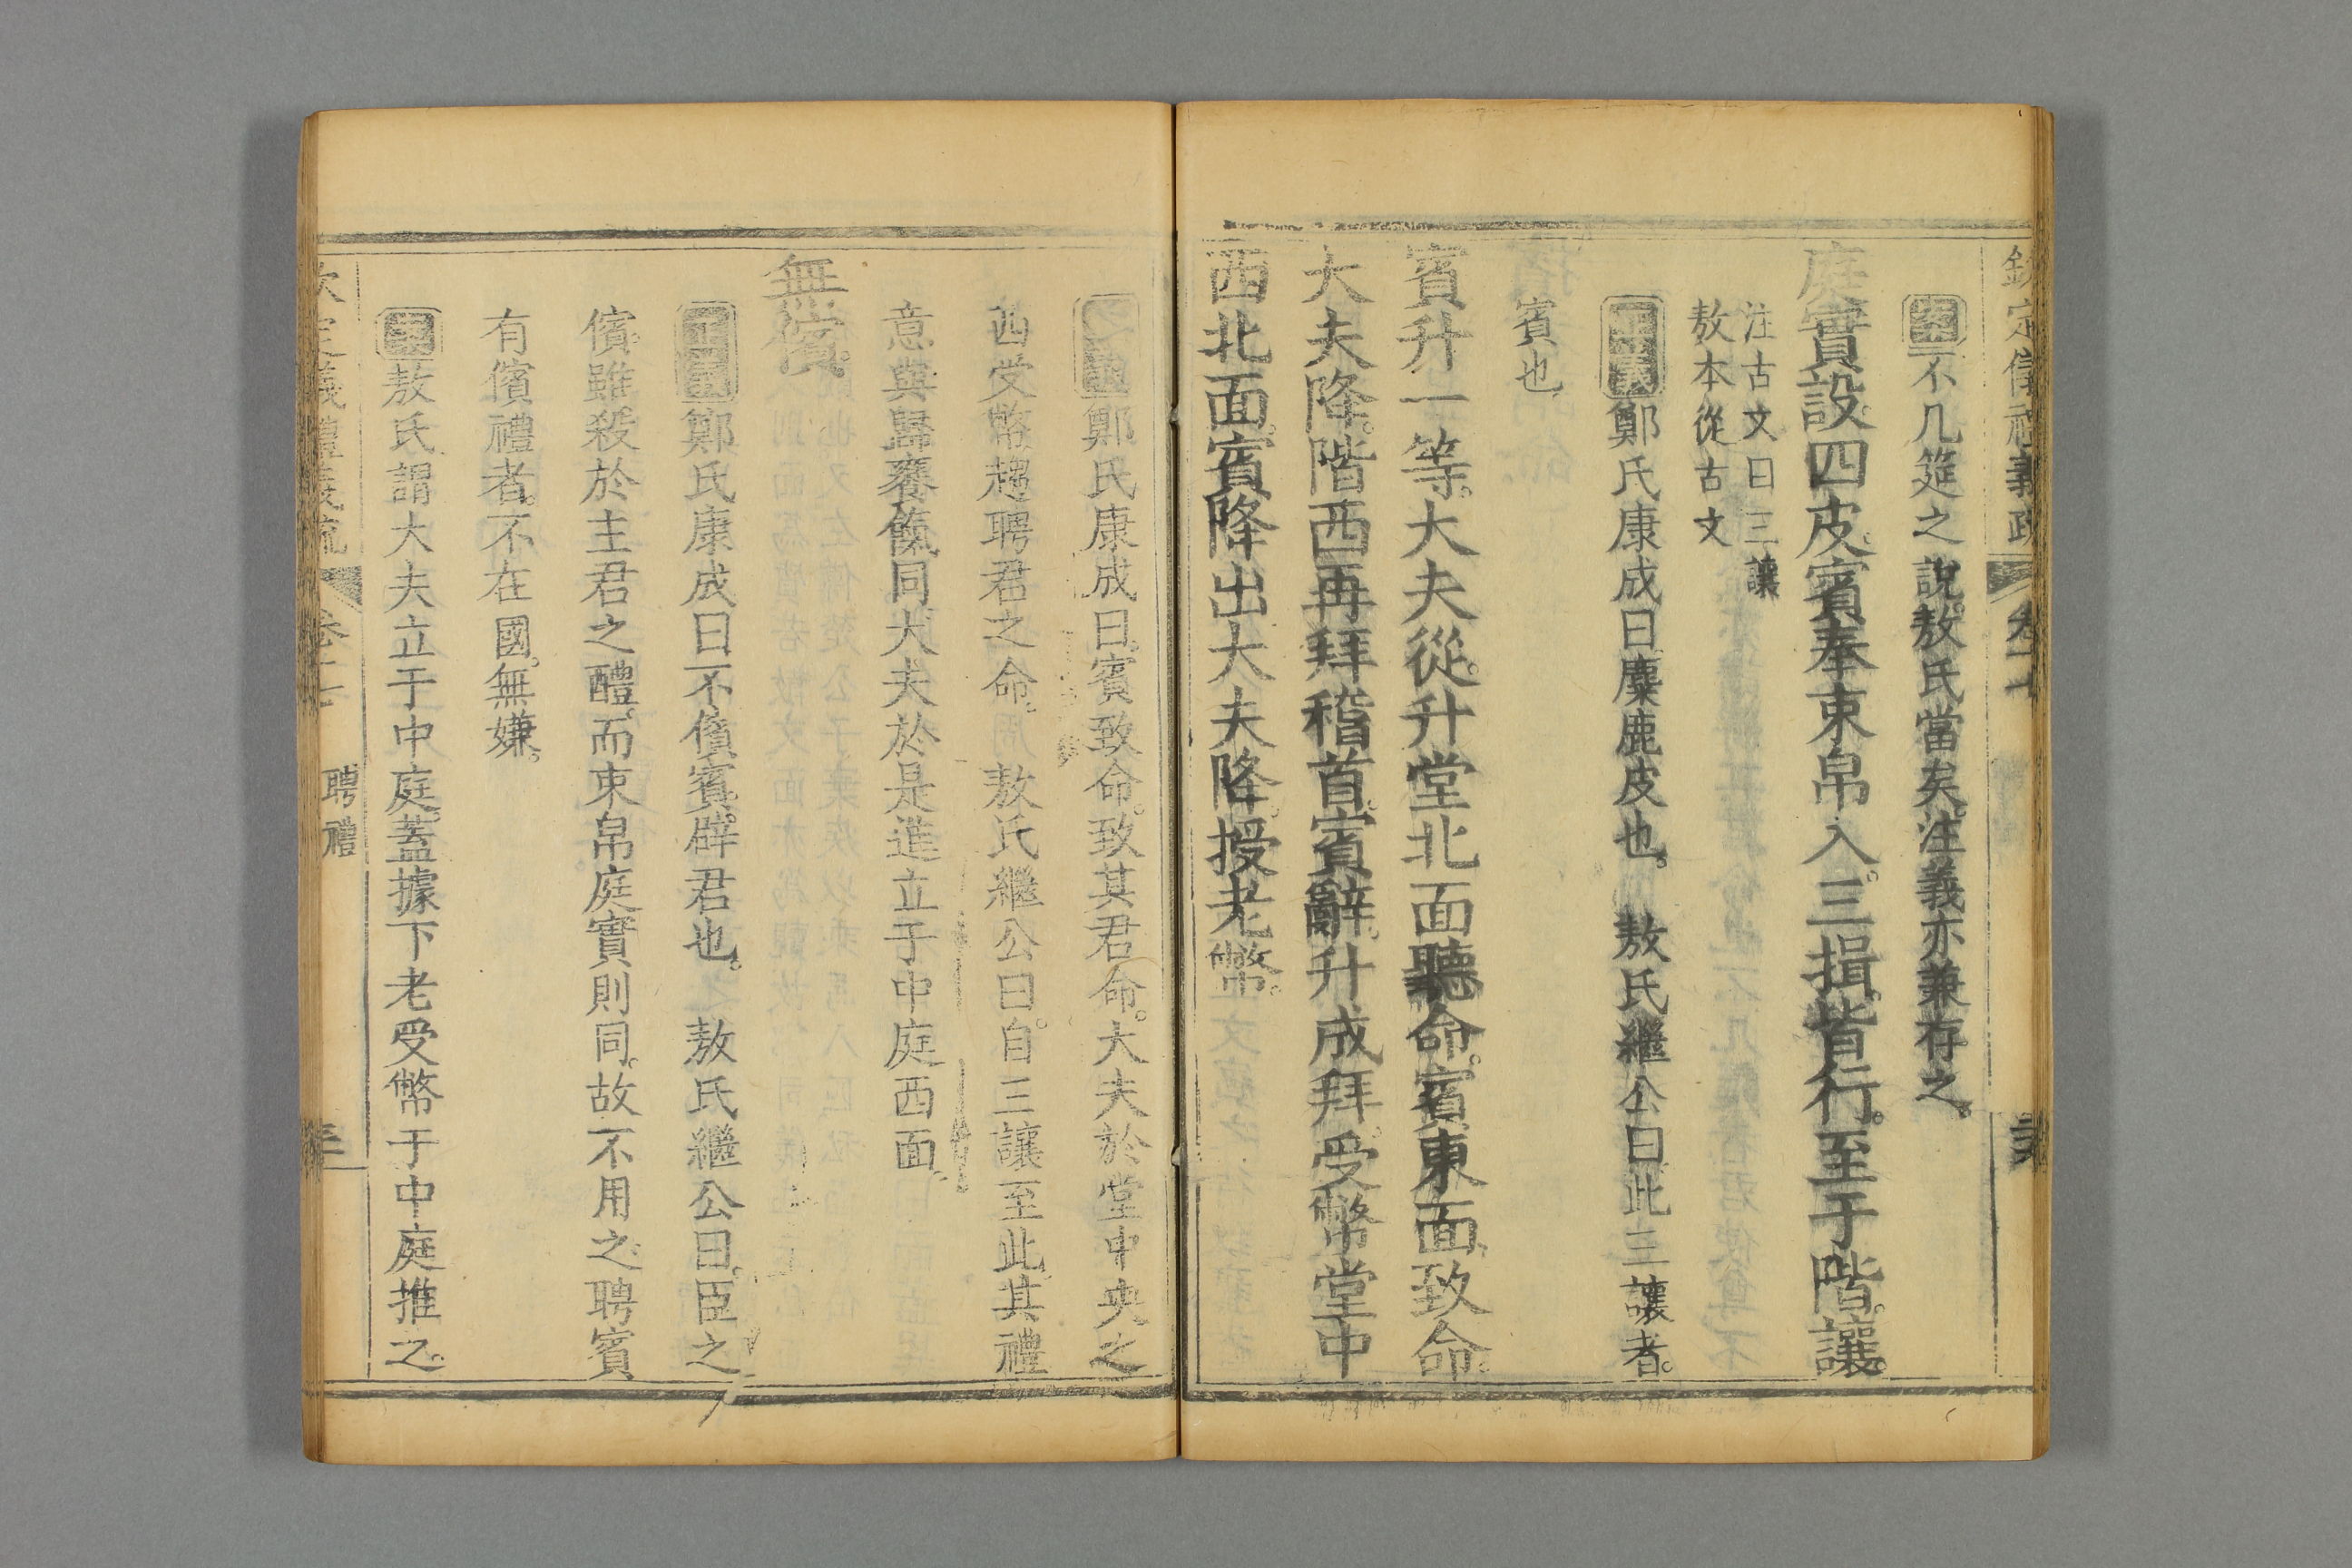 欽定儀禮義疏 卷十七
案不几筵之說。敖氏當矣。注義亦兼存之。
庭實設四皮。賓奉束帛入。三揖皆行。至于階。讓。
注古文曰三讓
敖本從古文
正義鄭氏康成曰麋鹿皮也。 敖氏繼公曰此三讓者。
賓也
賓升一等。大夫從。升堂北面聽命。賓東面致命。
大夫降。階西再拜稽首。賓辭。升成拜。受幣堂中
西北面。賓降出。大夫降。授老幣。
正義鄭氏康成曰。賓致命。致其君命。大夫於堂中央之
西受幣。趨聘君之命。 敖氏繼公曰。自三讓至此。其禮
意與歸饔餼同。大夫於是進立于中庭西面。
無儐。
正義鄭氏康成曰不儐賓。辟君也。 敖氏繼公曰。臣之
儐雖殺於主君之醴。而束帛庭實則同。故不用之。聘賓
有儐禮者。不在國。無嫌。
案敖氏謂大夫立于中庭。蓋據下老受幣于中庭推之。
欽定儀禮義疏 卷十七 聘禮